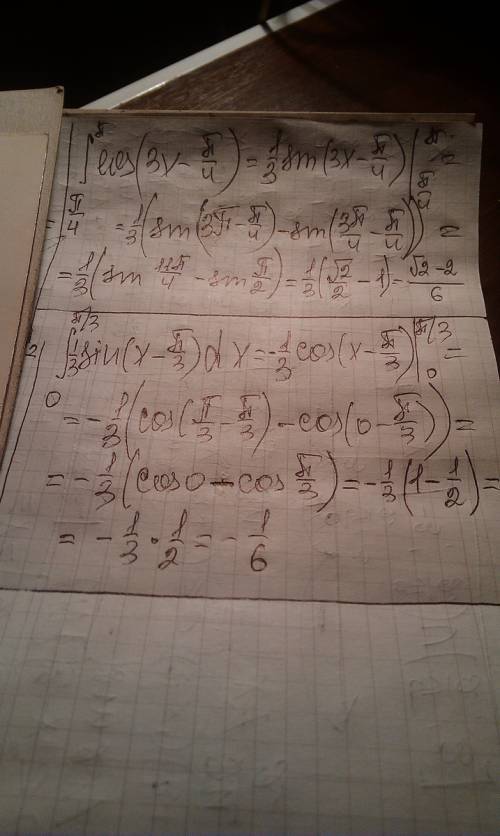 ∫_{π/4}^{π} cos(3x − π/4) = 1/3 sin(3x − π/4) |_{π/4}^{π} =
= 1/3 (sin(3π − π/4) − sin(3π/4 − π/4)) =
= 1/3 (sin 11π/4 − sin π/2) = 1/3 (√2/2 − 1) = (√2 − 2)/6
2) ∫_{0}^{π/3} 1/3 sin(x − π/3) dx = −1/3 cos(x − π/3) |_{0}^{π/3} =
= −1/3 (cos(π/3 − π/3) − cos(0 − π/3)) =
= −1/3 (cos 0 − cos π/3) = −1/3 (1 − 1/2) =
= −1/3 · 1/2 = −1/6